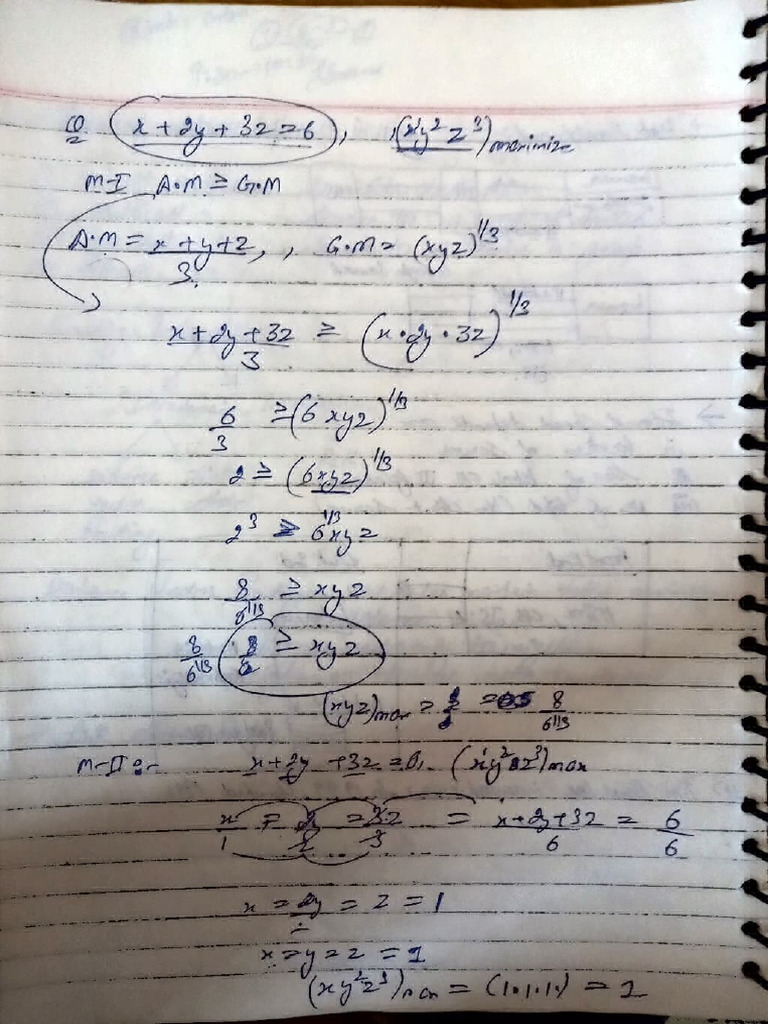 Q x + 2y + 3z = 6, (x¹y² z³)maximize
M-I A.M ≥ G.M
A.M = x + y + z / 3, G.M = (xyz)^1/3
x + 2y + 3z / 3 ≥ (x · 2y · 3z)^1/3
6/3 ≥ (6 xyz)^1/3
2 ≥ (6xyz)^1/3
2³ ≥ 6^1/3 xyz
8/6^1/3 ≥ xyz
8/6^1/3 ≥ xyz
(xyz)max = 8/6^1/3
M-II :- x + 2y + 3z = 6, (x¹y²z³)max
x/1 = 2y/2 = 3z/3 = x + 2y + 3z / 6 = 6/6
x = 2y/2 = z = 1
x = y = z = 1
(xy²z³)max = (1.1.1.) = 1